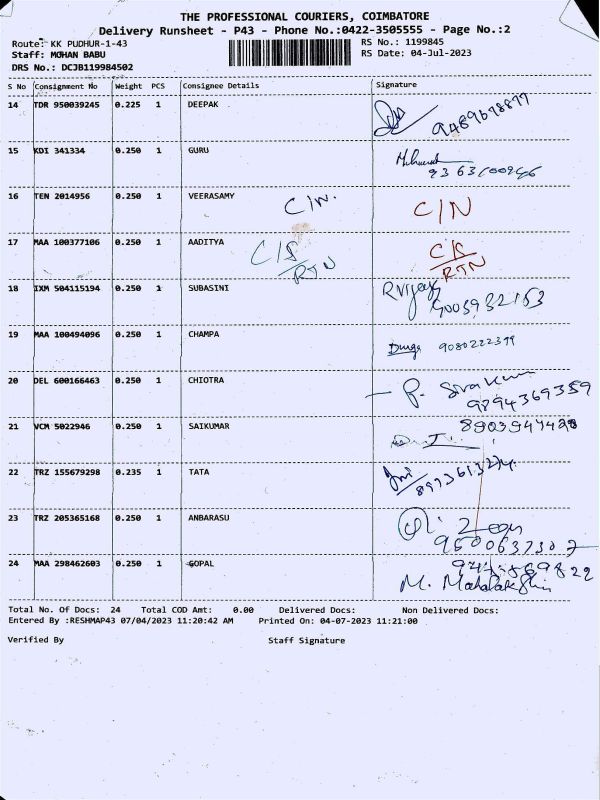 THE PROFESSIONAL COURIERS, COIMBATORE
Delivery Runsheet - P43 - Phone No.:0422-3505555 - Page No.:2
Route: KK PUDHUR-1-43
RS No.: 1199845
Staff: MOHAN BABU
RS Date: 04-Jul-2023
DRS No.: DCJB119984502
S No Consignment No Weight PCS Consignee Details Signature
14 TDR 950039245 0.225 1 DEEPAK
9489678877
15 KDI 341334 0.250 1 GURU
16 TEN 2014956 0.250 1 VEERASAMY C/N. C/N
17 MAA 100377106 0.250 1 AADITYA C/S C/S
RTN RTN
18 IXM 504115194 0.250 1 SUBASINI Rvijay
9003932153
19 MAA 100494096 0.250 1 CHAMPA Durga 9080222399
20 DEL 600166463 0.250 1 CHIOTRA
9894369359
21 VCM 5022946 0.250 1 SAIKUMAR
22 TRZ 155679298 0.235 1 TATA
23 TRZ 205365168 0.250 1 ANBARASU
9500637307
24 MAA 298462603 0.250 1 GOPAL
M. Mahalakshmi
Total No. Of Docs: 24 Total COD Amt: 0.00 Delivered Docs: Non Delivered Docs:
Entered By :RESHMAP43 07/04/2023 11:20:42 AM Printed On: 04-07-2023 11:21:00
Verified By Staff Signature